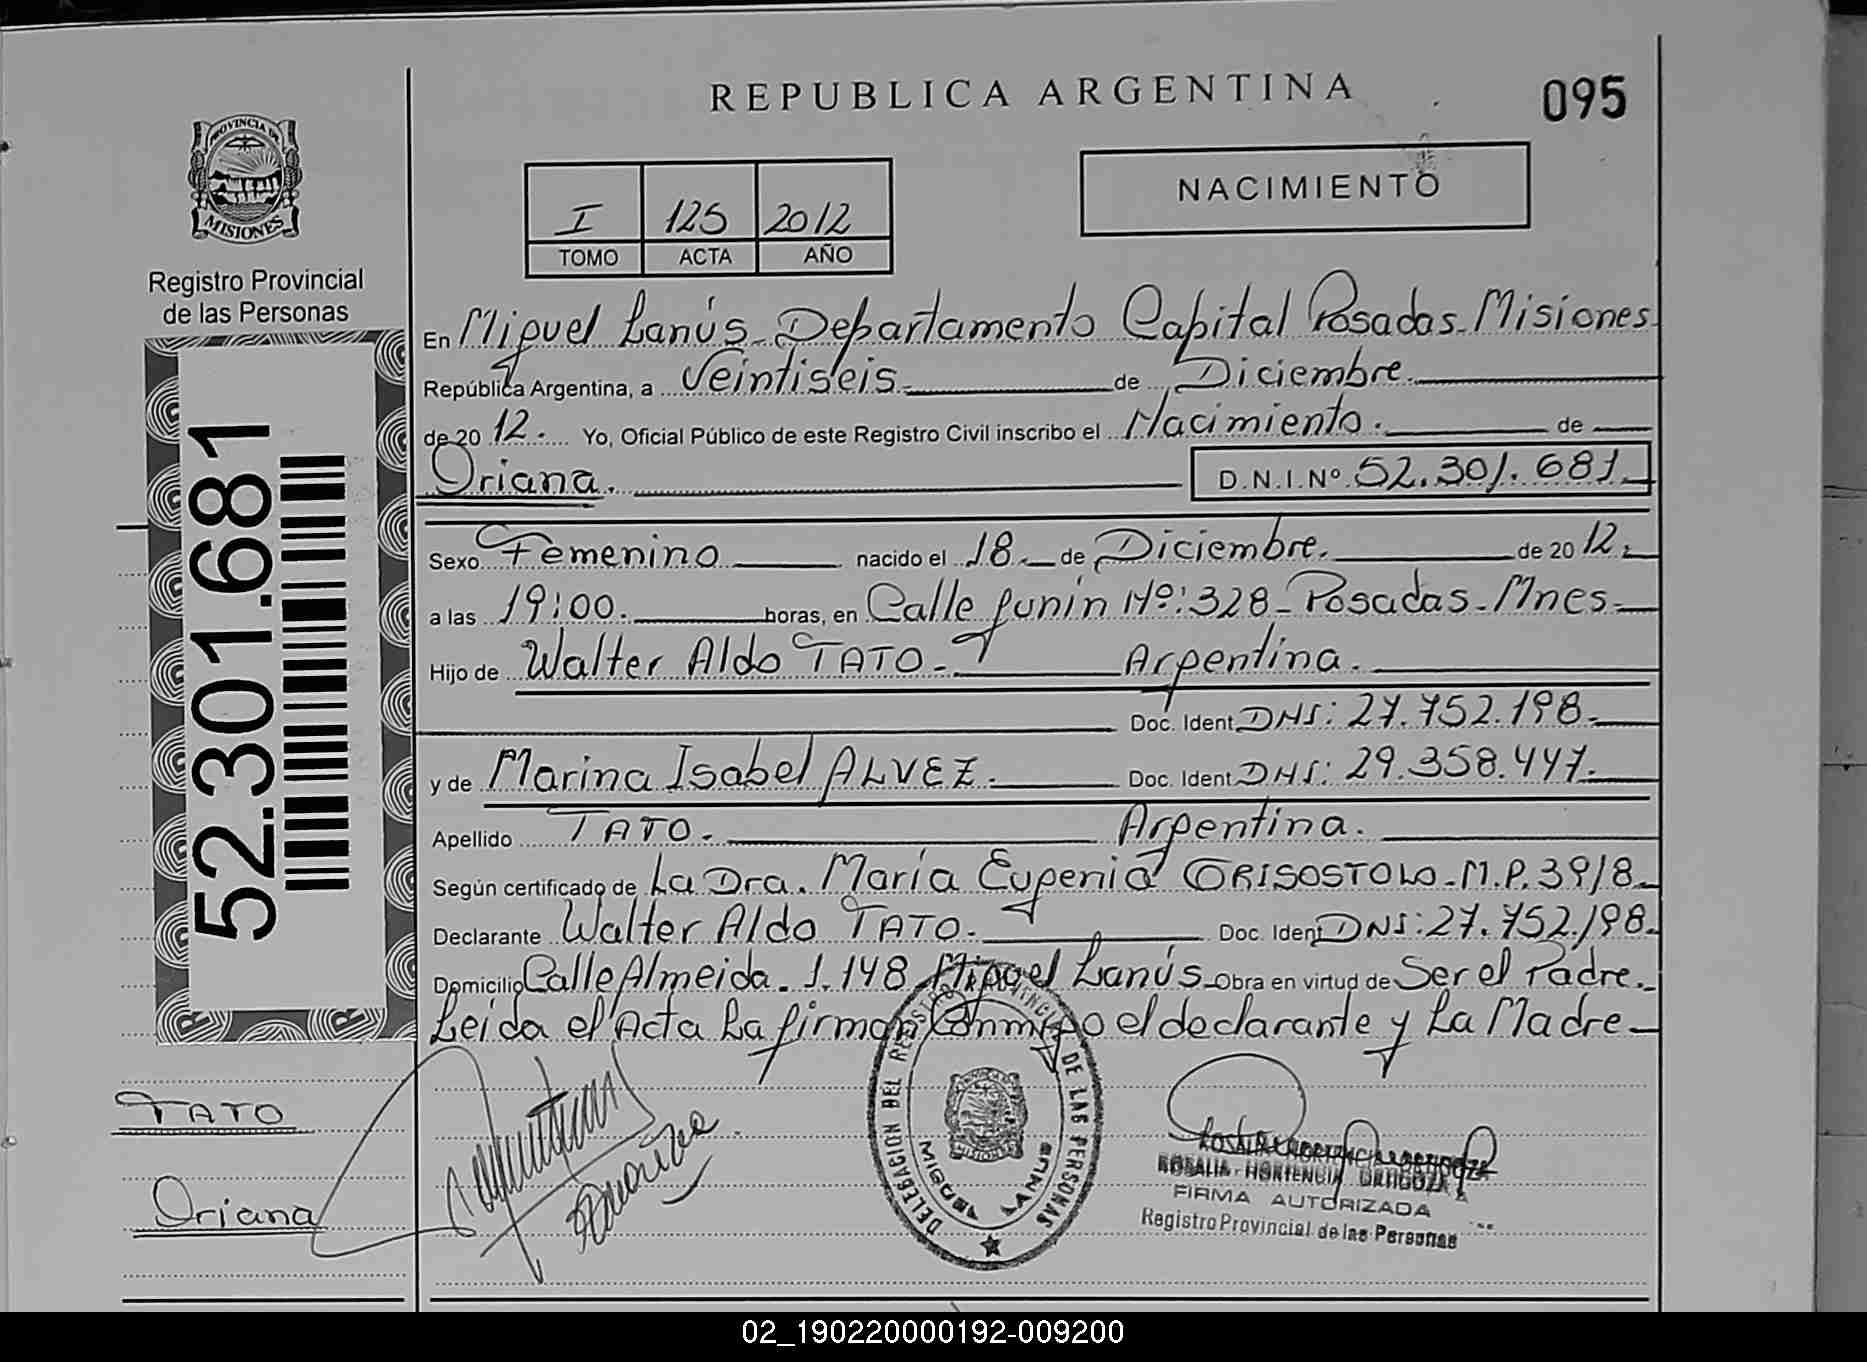 REPUBLICA ARGENTINA
095
PROVINCIA DE
MISIONES
Registro Provincial
de las Personas
52.301.681
I 125 2012
TOMO ACTA AÑO
NACIMIENTO
En Miguel Lanús - Departamento Capital Posadas - Misiones
República Argentina, a Veintiseis de Diciembre.
de 20 12. Yo, Oficial Público de este Registro Civil inscribo el Nacimiento. de
Oriana. D.N.I.Nº 52.301.681
Sexo Femenino nacido el 18 de Diciembre. de 20 12.
a las 19:00. horas, en Calle Junín Nº: 328 - Posadas - Mnes
Hijo de Walter Aldo TATO - Argentina.
Doc. Ident. DNI: 27.752.198.
y de Marina Isabel ALVEZ. Doc. Ident. DNI: 29.358.447.
Apellido TATO. Argentina.
Según certificado de La Dra. María Eugenia GRISOSTOLO - M.P. 3918
Declarante Walter Aldo TATO. Doc. Ident DNI: 27.752.198.
Domicilio Calle Almeida. 1.148 Miguel Lanús - Obra en virtud de Ser el Padre.
Leída el Acta La firman Conmigo el declarante y La Madre
TATO
Oriana
DELEGACION DEL REGISTRO PROVINCIAL DE LAS PERSONAS
MISIONES
MIGUEL LANUS
ROSALIA HORTENCIA ORTIGOZA
FIRMA AUTORIZADA
Registro Provincial de las Personas
02_190220000192-009200